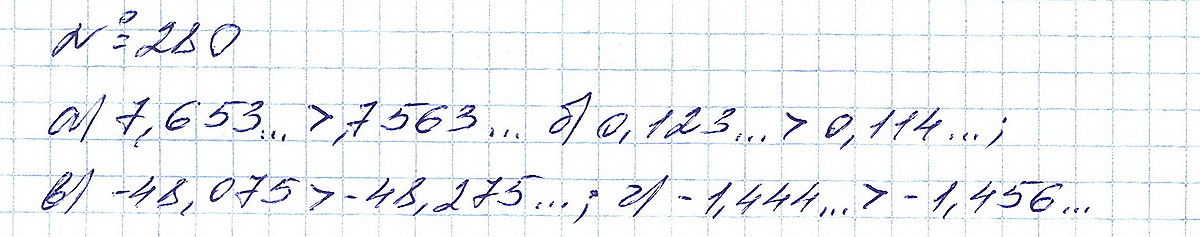 № 280
а) 7,653... > ,7563... б) 0,123... > 0,114...;
в) -48,075 > -48,275...; г) -1,444... > -1,456...